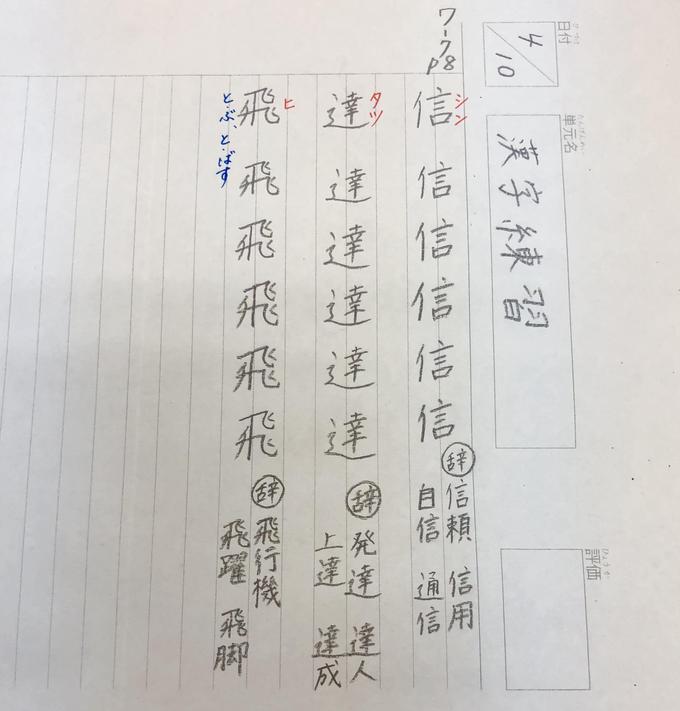 日付
4/10
単元名
漢字練習
評価
ワークp8
シン
信信信信信信
辞 信頼 信用
自信 通信
タツ
達達達達達達
辞 発達 達人
上達 達成
ヒ
飛飛飛飛飛飛
とぶ、とばす
辞 飛行機
飛躍 飛脚